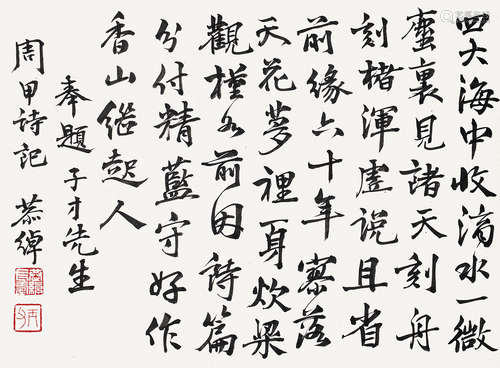 四大海中收滴水一微
塵裏見諸天刻舟
刻楮渾虛說且省
前緣六十年寥落
天花夢裡身炊粱
觀槿名前因詩篇
分付精藍守好作
香山繼起人
奉題子才先生
周甲詩記 慕綽